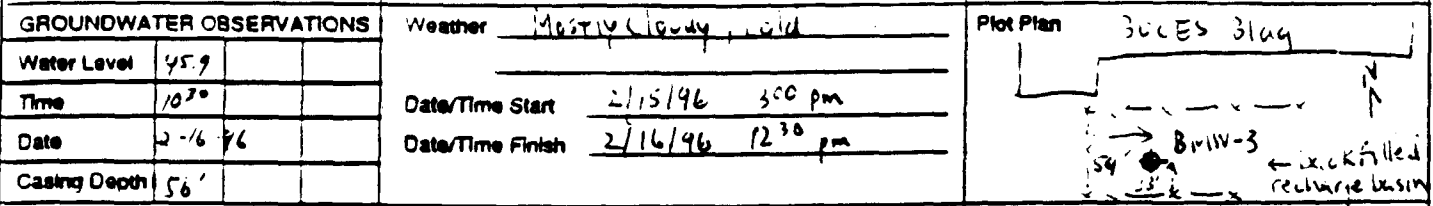 GROUNDWATER OBSERVATIONS
Water Level 45.9
Time 10 30
Date 2-16-96
Casing Depth 56'
Weather Mostly Cloudy, Cold
Date/Time Start 2/15/96 3 00 pm
Date/Time Finish 2/16/96 12 30 pm
Plot Plan BOCES Bldg
N
BMW-3
54'
← backfilled
recharge basin